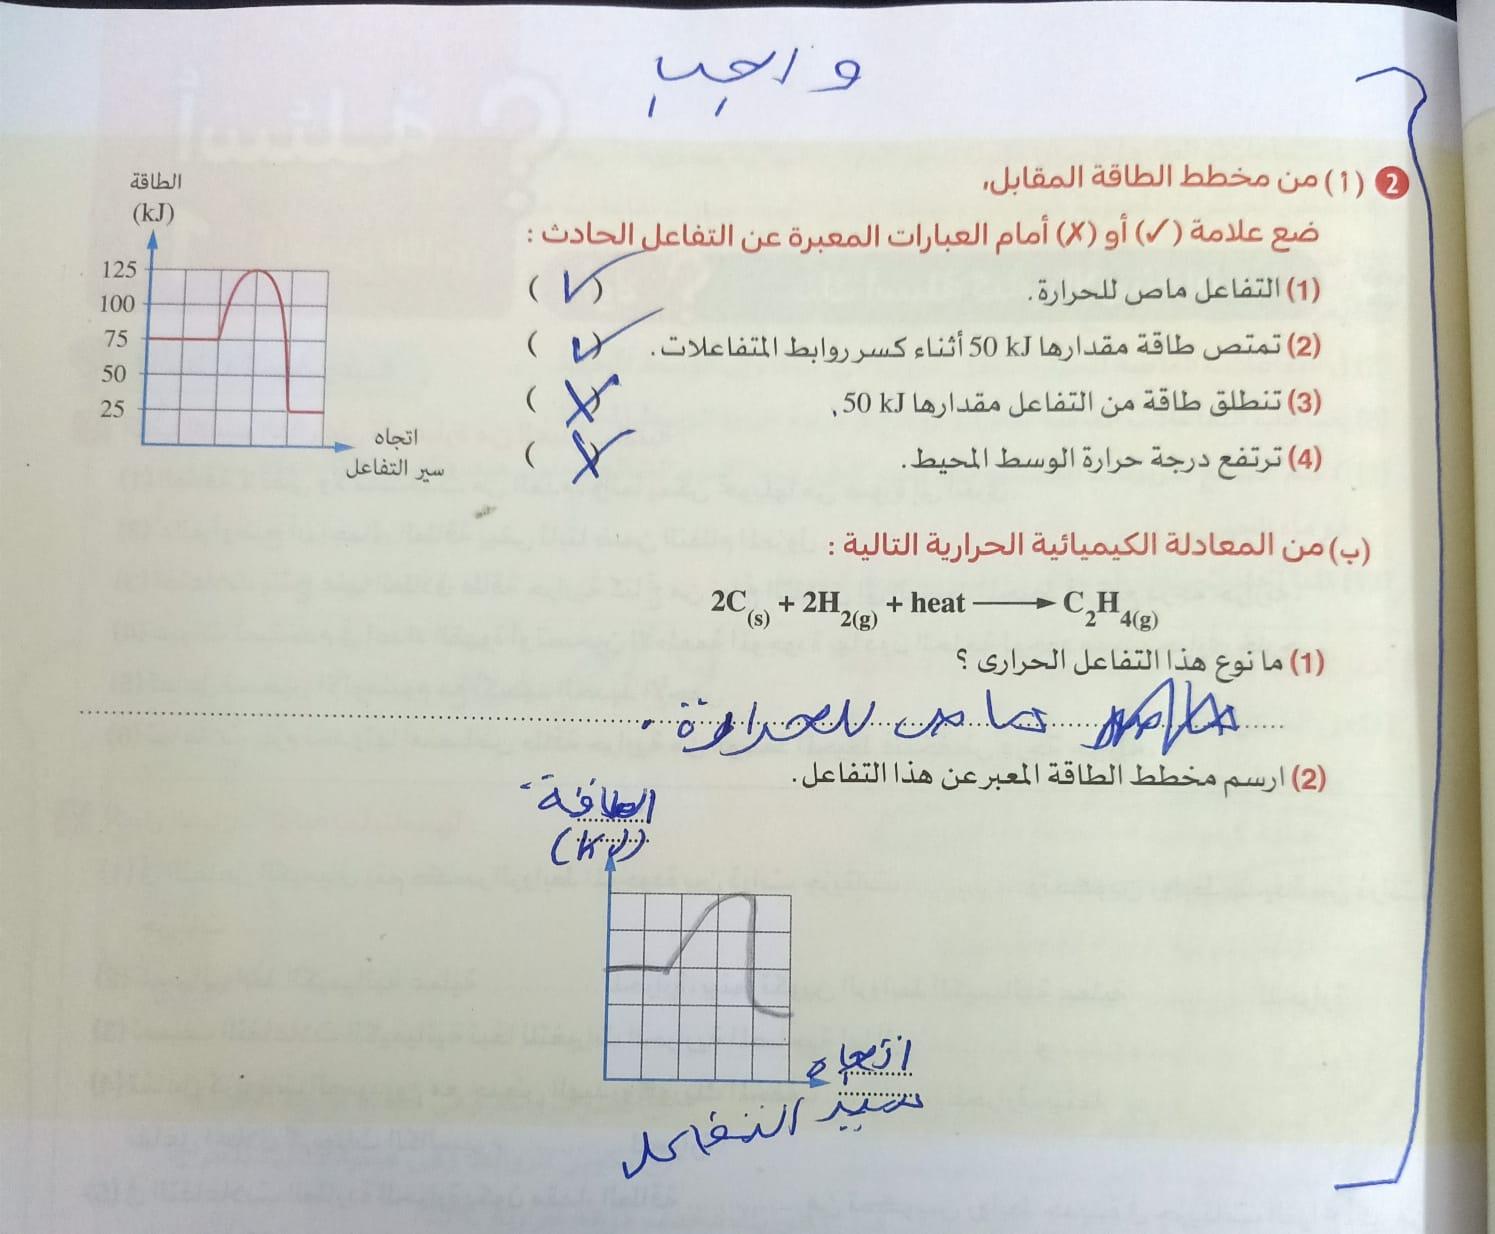 واجب
2 (أ) من مخطط الطاقة المقابل،
ضع علامة (✓) أو (✗) أمام العبارات المعبرة عن التفاعل الحادث :
(1) التفاعل ماص للحرارة. (✓)
(2) تمتص طاقة مقدارها 50 kJ أثناء كسر روابط المتفاعلات. (✓)
(3) تنطلق طاقة من التفاعل مقدارها 50 kJ. (✗)
(4) ترتفع درجة حرارة الوسط المحيط. (✗)
الطاقة
(kJ)
125
100
75
50
25
اتجاه
سير التفاعل
(ب) من المعادلة الكيميائية الحرارية التالية :
2C(s) + 2H2(g) + heat ⟶ C2H4(g)
(1) ما نوع هذا التفاعل الحرارى ؟
ماص للحرارة.
(2) ارسم مخطط الطاقة المعبر عن هذا التفاعل.
الطاقة
(kJ)
اتجاه
سير التفاعل